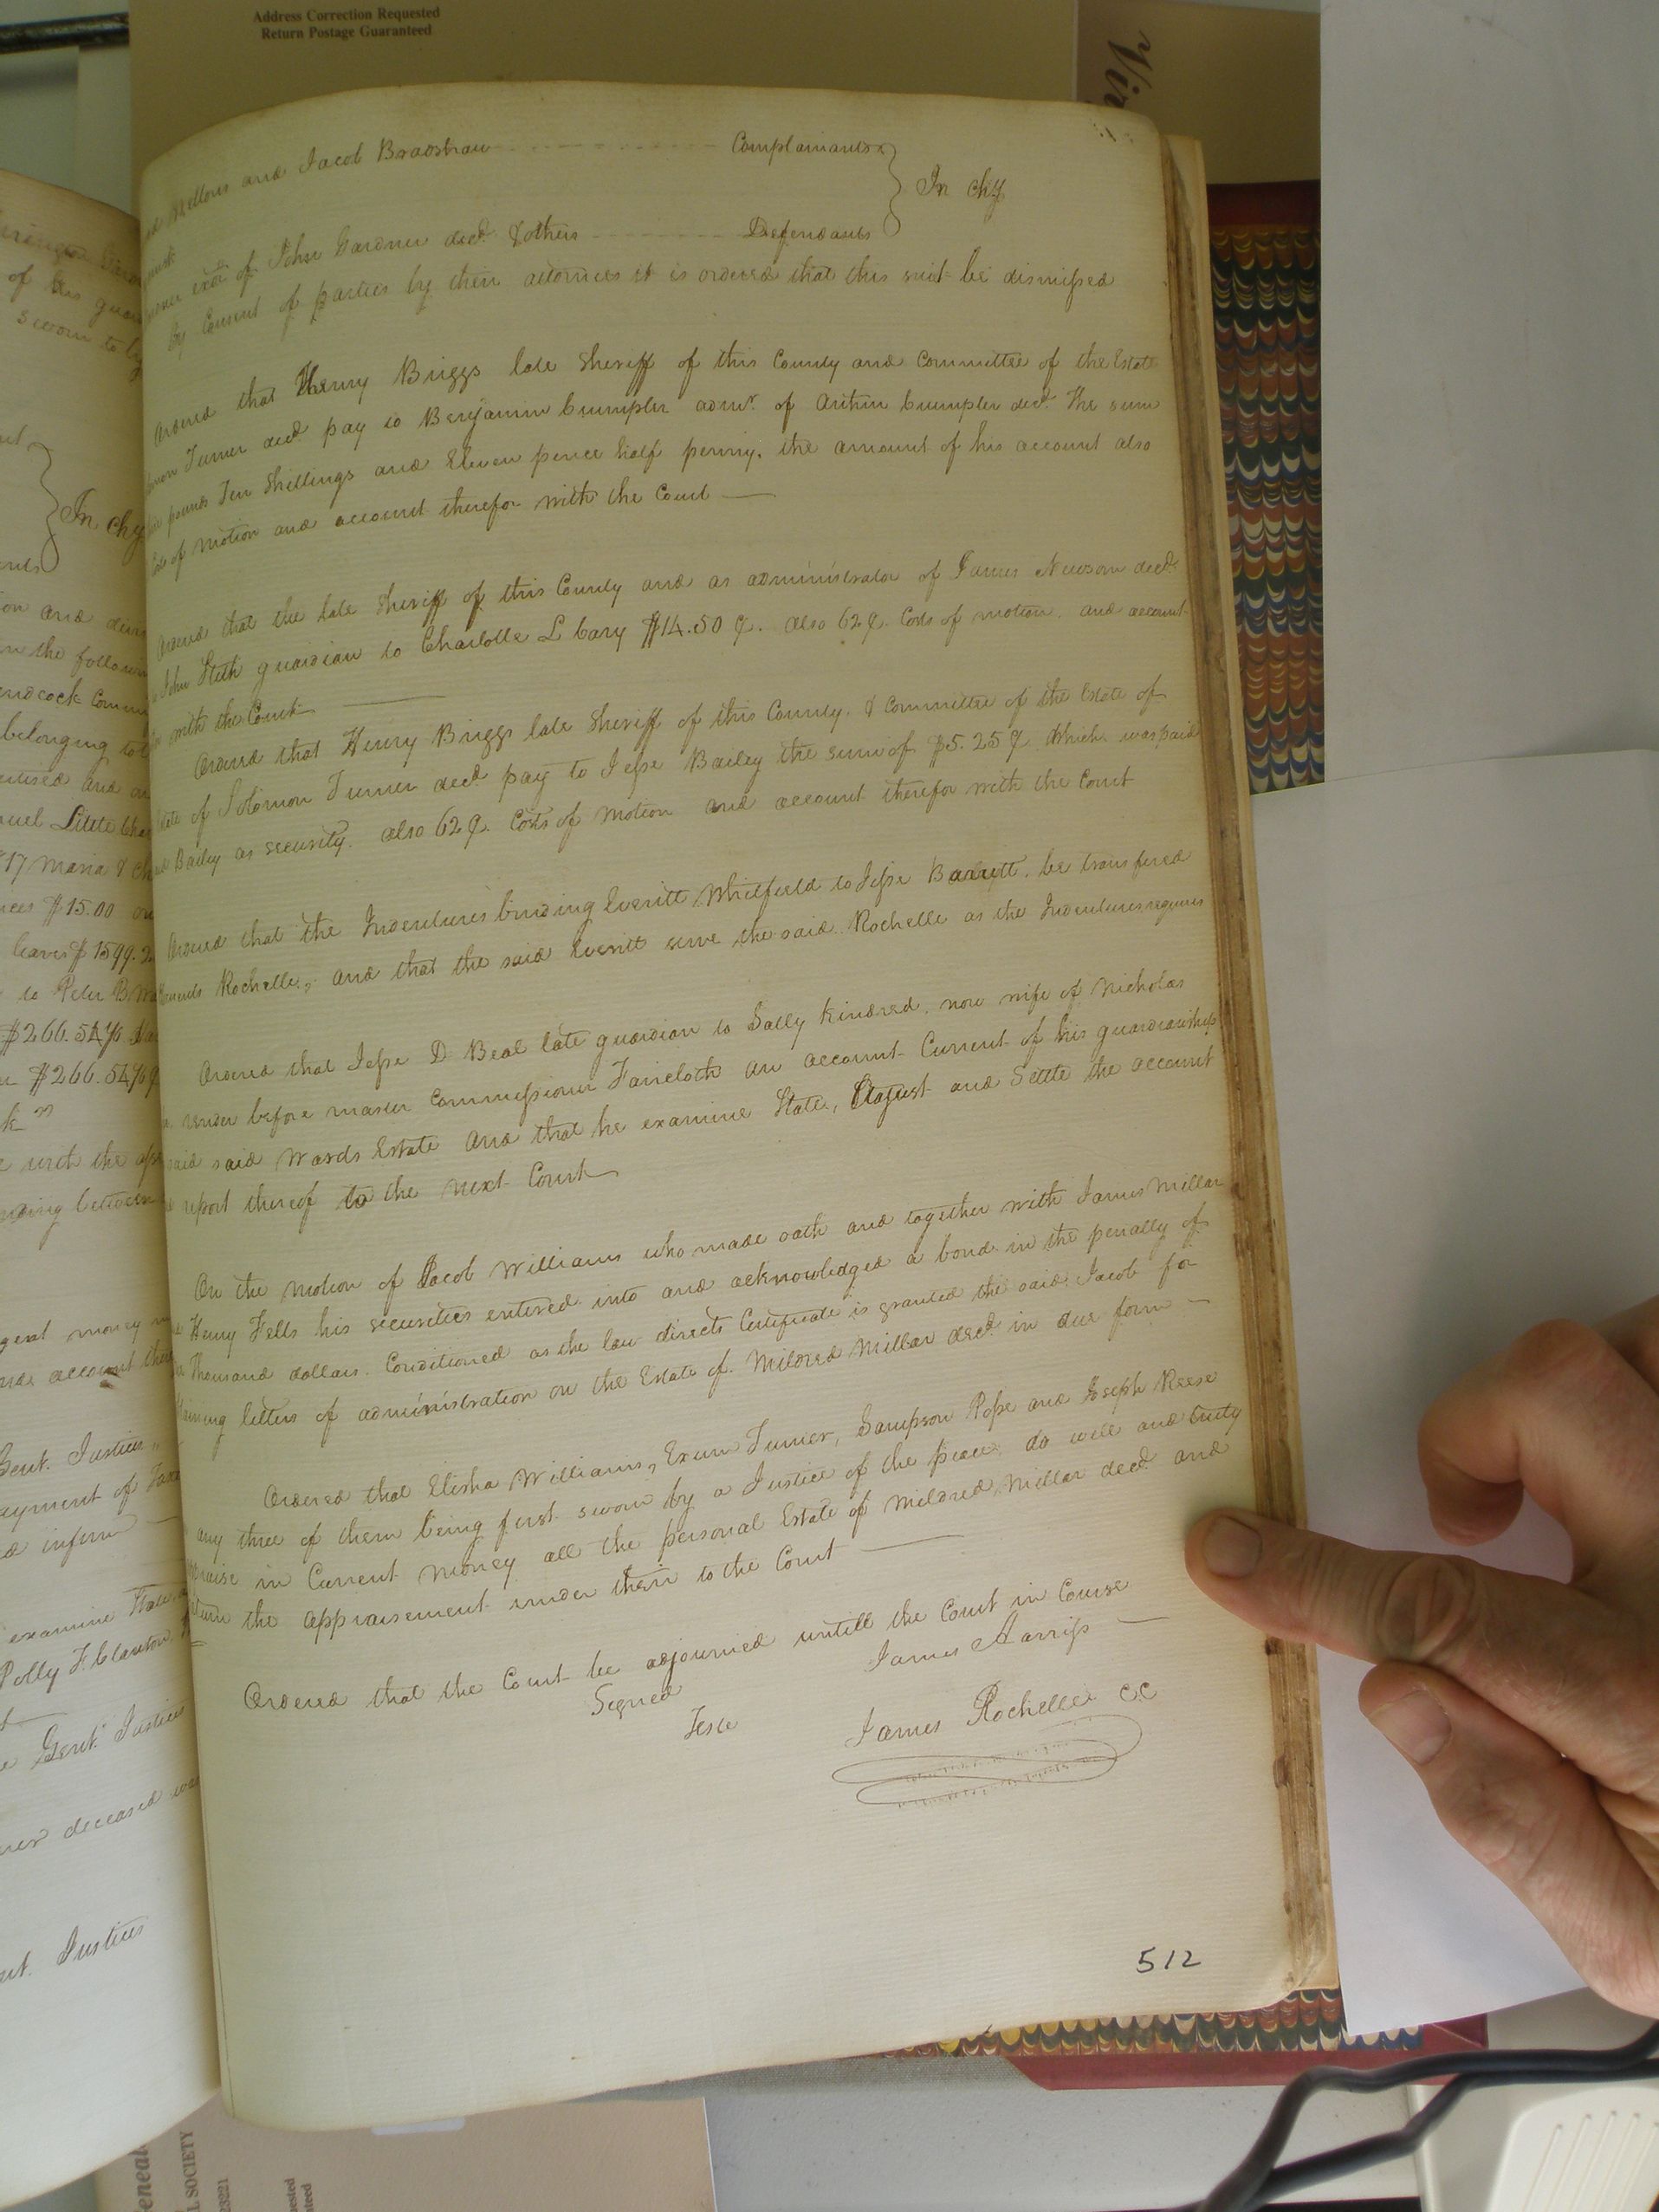 Address Correction Requested
Return Postage Guaranteed
Vir
and Jacob Bradshaw Complainants
In chy
of John Gardner decd. & others Defendants
by Consent of parties by their attornies it is ordered that this suit be dismissed
Ordered that Henry Briggs late Sheriff of this County and Committee of the Estate
Turner decd. pay to Benjamin Crumpler admr. of Arthur Crumpler decd. The sum
pounds Ten Shillings and Eleven pence half penny. the amount of his account also
of motion and account therefor with the Court
Ordered that the late Sheriff of this County and as administrator of James Newsom decd.
John Stith guardian to Charlotte L Cary $14.50 ȼ. also 62 ȼ. Costs of motion, and account
with the Court
Ordered that Henry Briggs late Sheriff of this County. & Committee of the Estate of
of Solomon Turner decd. pay to Jesse Bailey the sum of $5.25 ȼ which was paid
Bailey as security. also 62 ȼ. Costs of motion and account therefor with the Court
Ordered that the Indentures binding Everitt Whitfield to Jesse Barrett, be transfered
Rochelle, and that the said Everitt serve the said Rochelle as the Indentures requires
Ordered that Jesse D Beal late guardian to Sally Kindred, now wife of Nicholas
render before master Commissioner Faircloth an account Current of his guardianship
said said Wards Estate and that he examine State, August and Settle the account
report thereof to the next Court
On the motion of Jacob Williams who made oath and together with James Millar
Henry Fells his securities entered into and acknowledged a bond in the penalty of
Thousand dollars. Conditioned as the law directs Certificate is granted the said Jacob for
letters of administration on the Estate of Mildred Millar decd. in due form
Ordered that Elisha Williams, Exum Turner, Sampson Pope and Joseph Reese
any three of them being first sworn by a Justice of the peace, do well and truly
in Current money all the personal Estate of Mildred Millar decd. and
the appraisement under their to the Court
Ordered that the Court be adjourned untill the Court in Course
Signed James Harriss
Teste James Rochelle CC
512
of his guar
sworn to by
In chy
on and
in the follow
belonging to
and
17 Maria & Ch
$15.00
leaves $1599.2
to Peter B
$266.54
$266.54
with the
between
money
account
Gent. Justices
ayment of
inform
examine State
Polly F. Clanton
Gent. Justices
deceased
Justices
L SOCIETY
23221